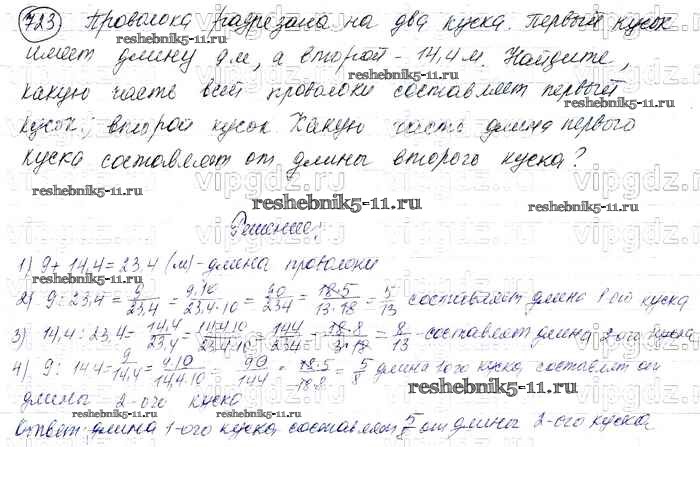 723 Проволока разрезана на два куска. Первый кусок
имеет длину 9 м, а второй - 14,4 м. Найдите,
reshebnik5-11.ru
какую часть всей проволоки составляет первый
кусок; второй кусок. Какую часть длина первого
куска составляет от длины второго куска?
reshebnik5-11.ru
vipgdz.ru
reshebnik5-11.ru
Решение:
1) 9+14,4=23,4 (м) - длина проволоки
2) 9:23,4 = 9/23,4 = 9·10/23,4·10 = 90/234 = 18·5/13·18 = 5/13 составляет длина 1-ого куска
3) 14,4:23,4 = 14,4/23,4 = 14,4·10/23,4·10 = 144/234 = 18·8/13·18 = 8/13 - составляет длина 2-ого куска
4) 9:14,4 = 9/14,4 = 9·10/14,4·10 = 90/144 = 18·5/18·8 = 5/8 длина 1ого куска составляет от
длины 2-ого куска
reshebnik5-11.ru
Ответ: длина 1-ого куска составляет 5/8 от длины 2-ого куска
reshebnik5-11.ru